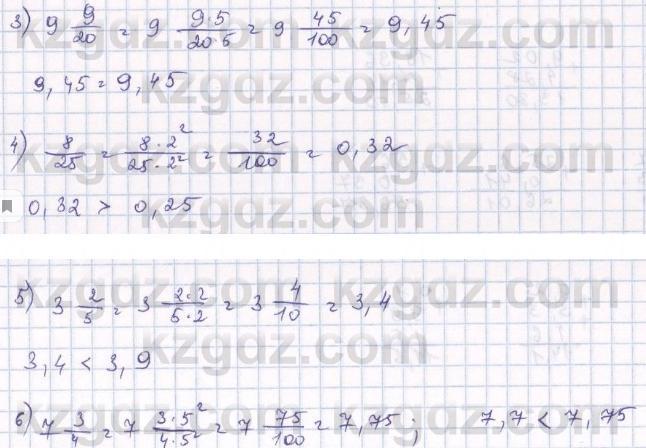 3) 9 9/20 = 9 9·5/20·5 = 9 45/100 = 9,45
9,45 = 9,45
4) 8/25 = 8·2²/25·2² = 32/100 = 0,32
0,32 > 0,25
5) 3 2/5 = 3 2·2/5·2 = 3 4/10 = 3,4
3,4 < 3,9
6) 7 3/4 = 7 3·5²/4·5² = 7 75/100 = 7,75; 7,7 < 7,75
kzgdz.com